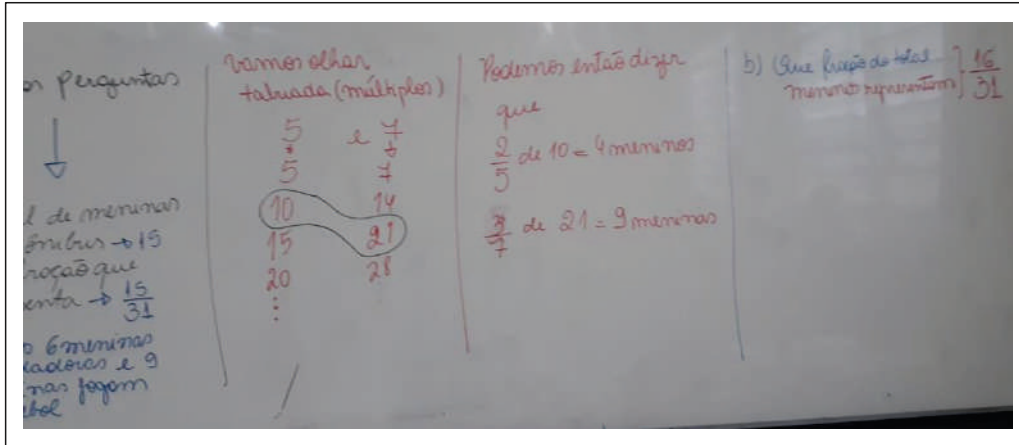 perguntas
l de meninas
ônibus → 15
roção que
enta → 15/31
6 meninas
adoras e 9
nas jogam
ebol
vamos olhar
tabuada (múltiplos)
5 e 7
5 7
10 14
15 21
20 28
⋮
Podemos então dizer
que
2/5 de 10 = 4 meninos
3/7 de 21 = 9 meninas
b) Que fração do total
meninos representam} 16/31